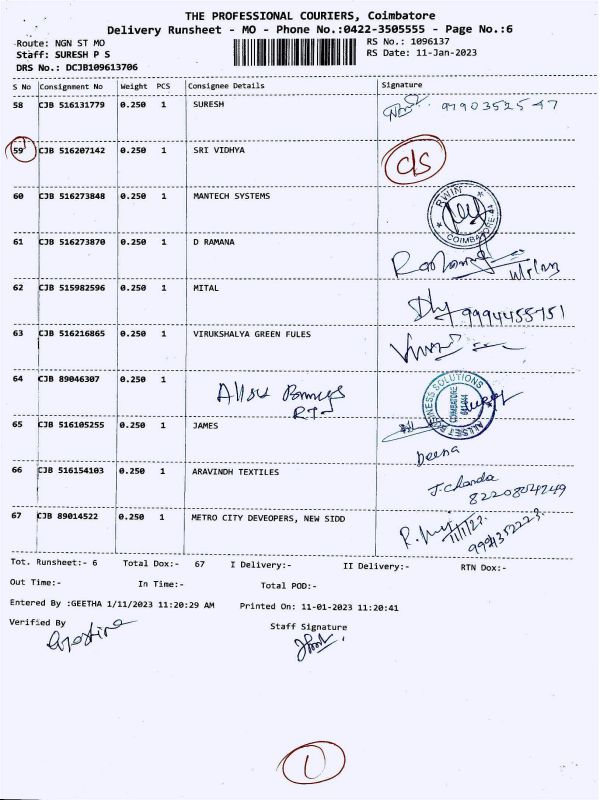 THE PROFESSIONAL COURIERS, Coimbatore
Delivery Runsheet - MO - Phone No.:0422-3505555 - Page No.:6
Route: NGN ST MO
RS No.: 1096137
Staff: SURESH P S
RS Date: 11-Jan-2023
DRS No.: DCJB109613706
S No Consignment No Weight PCS Consignee Details Signature
58 CJB 516131779 0.250 1 SURESH
59 CJB 516207142 0.250 1 SRI VIDHYA
60 CJB 516273848 0.250 1 MANTECH SYSTEMS
COIMBATORE
61 CJB 516273870 0.250 1 D RAMANA
62 CJB 515982596 0.250 1 MITAL
9994455751
63 CJB 516216865 0.250 1 VIRUKSHALYA GREEN FULES
64 CJB 89046307 0.250 1
ALLSET BUSINESS SOLUTIONS
COIMBATORE
65 CJB 516105255 0.250 1 JAMES
Deena
66 CJB 516154103 0.250 1 ARAVINDH TEXTILES
67 CJB 89014522 0.250 1 METRO CITY DEVEOPERS, NEW SIDD
11/1/23
Tot. Runsheet:- 6 Total Dox:- 67 I Delivery:- II Delivery:- RTN Dox:-
Out Time:- In Time:- Total POD:-
Entered By :GEETHA 1/11/2023 11:20:29 AM Printed On: 11-01-2023 11:20:41
Verified By
Staff Signature
1